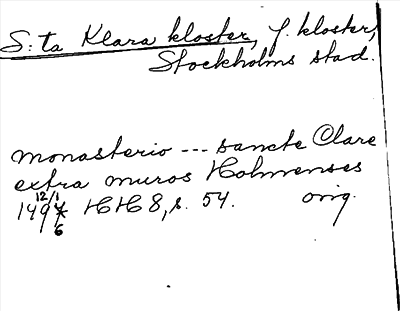 S:ta Klara kloster, f. kloster,
Stockholms stad.
monasterio --- sancte Clare
extra muros Holmenses
12/1
1496 HH 8, s. 54. orig.